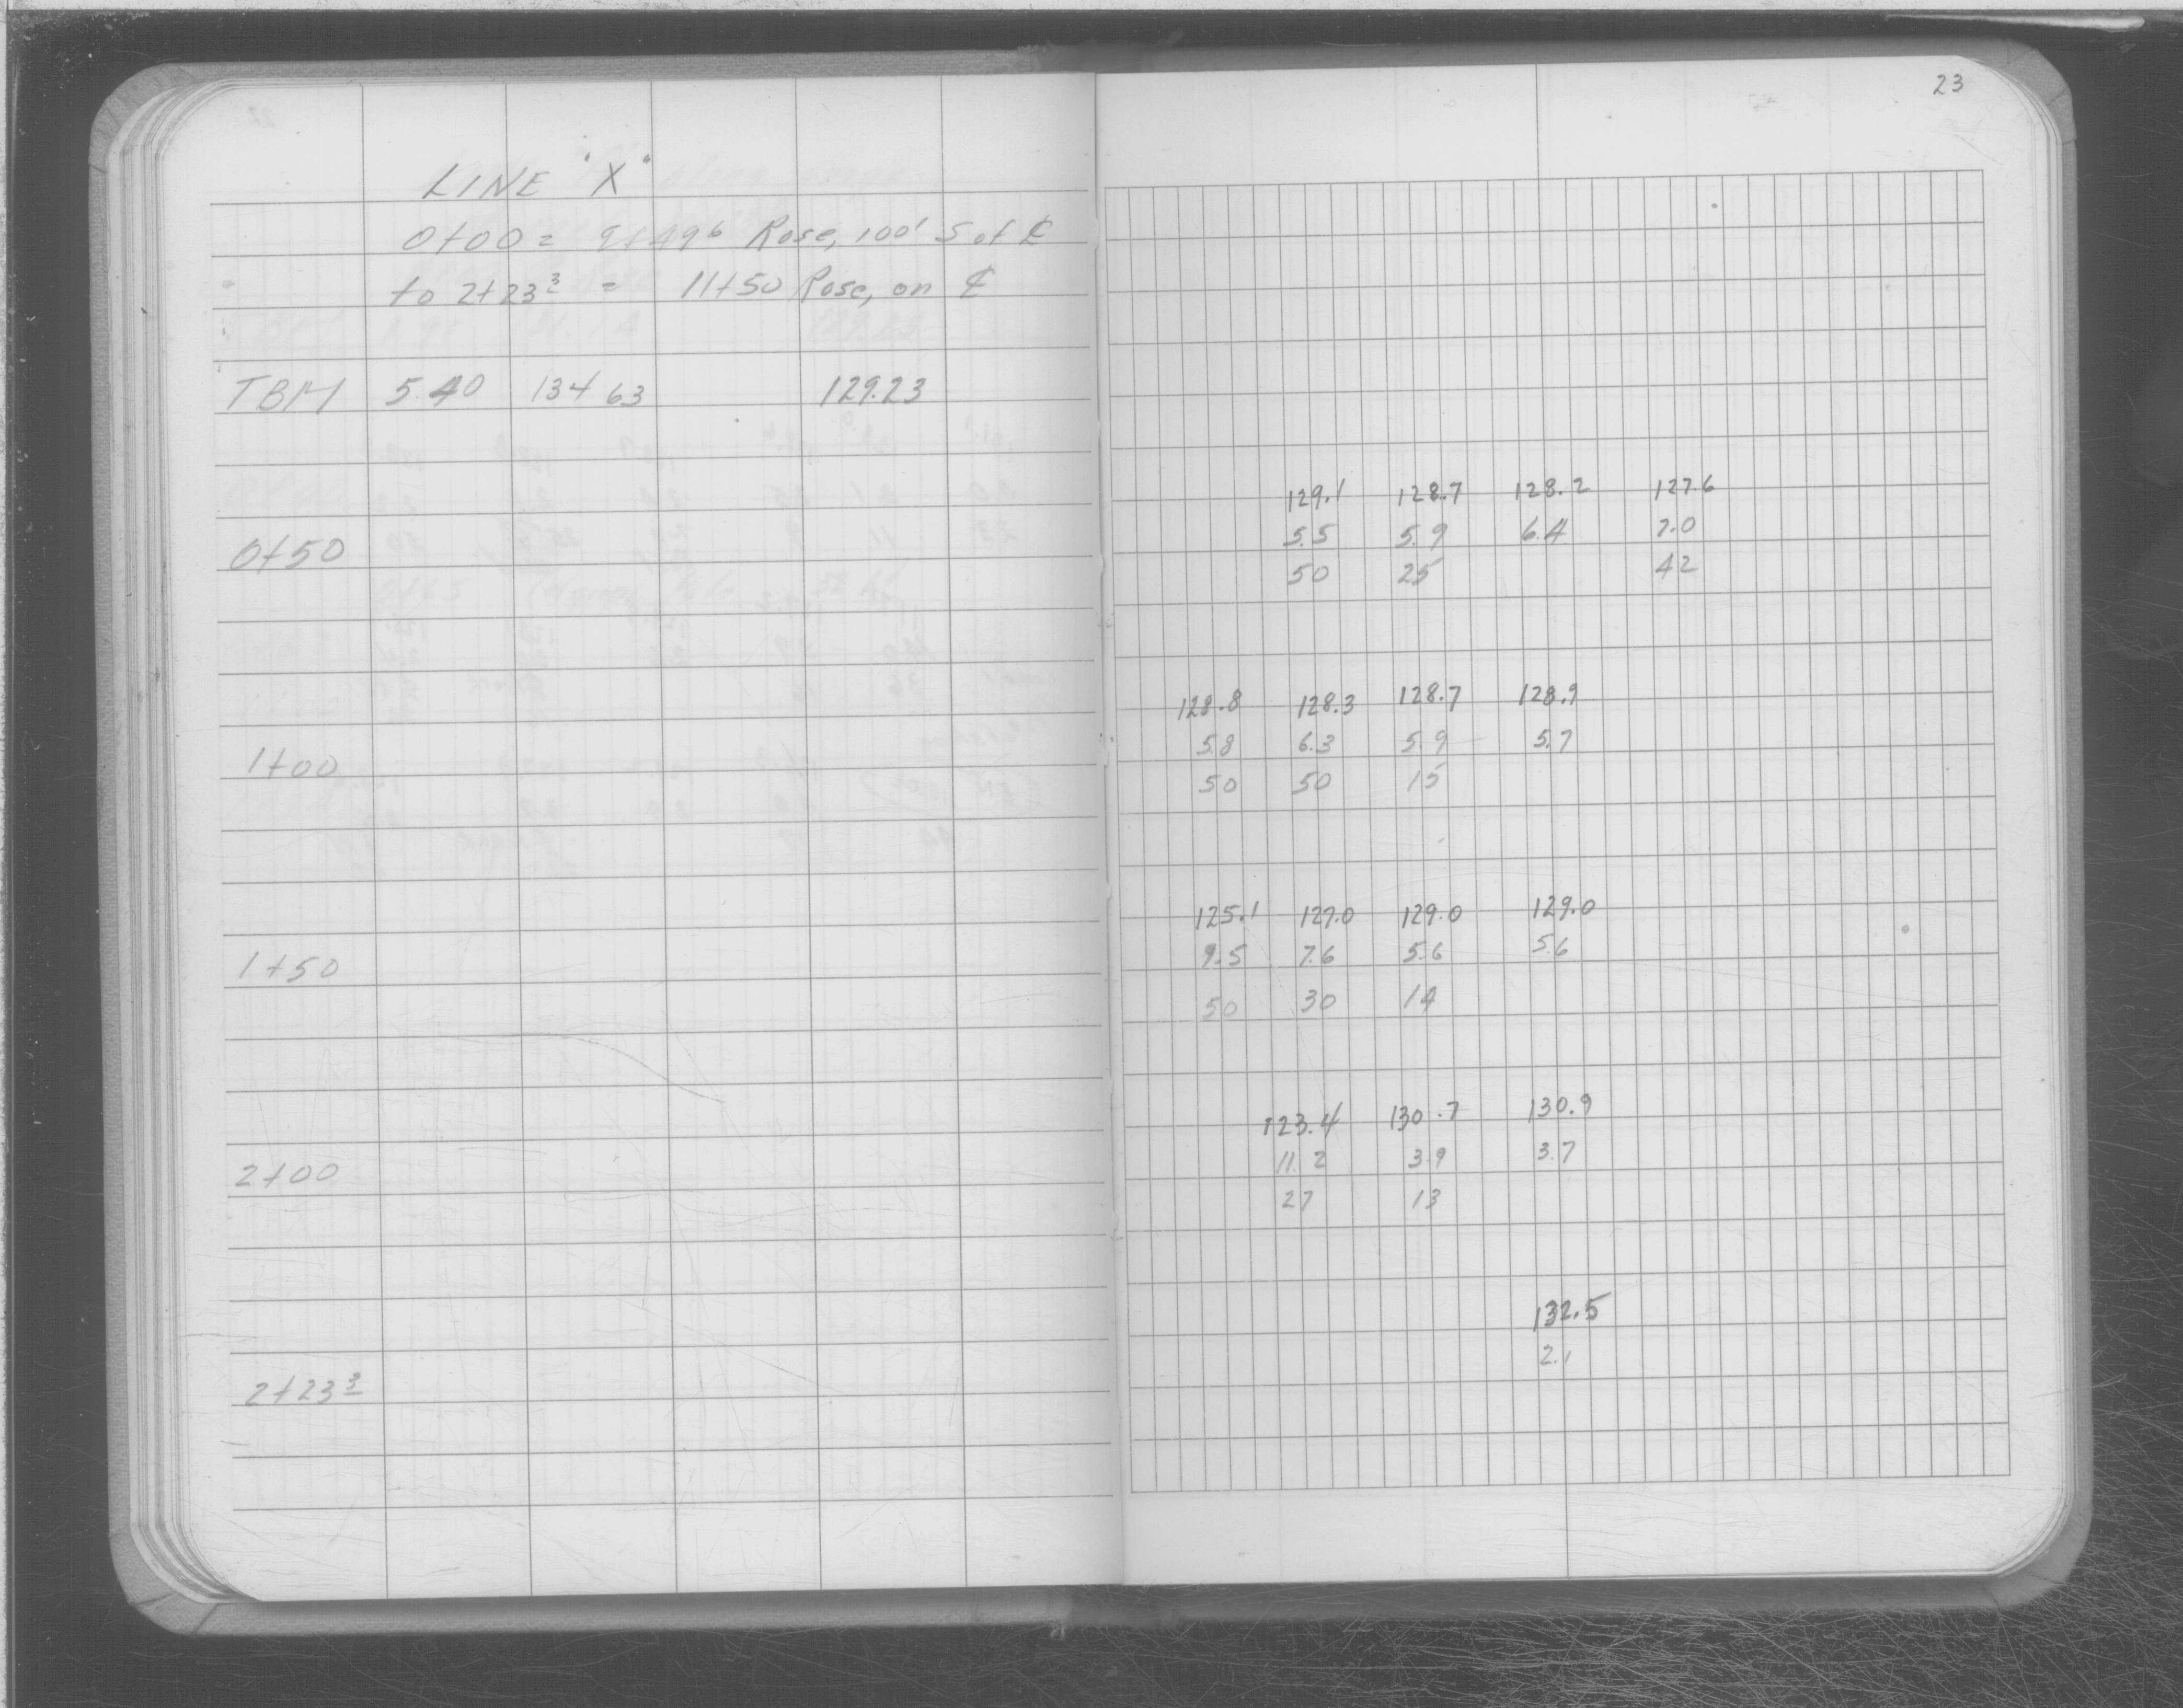 23
LINE "X"
0+00 = 9+49 6 Rose, 100' S of ℄
to 2+23 3 = 11+50 Rose, on ℄
TBM 5.40 134.63 129.23
129.1 128.7 128.2 127.6
5.5 5.9 6.4 7.0
0+50
50 25 42
128.8 128.3 128.7 128.9
5.8 6.3 5.9 5.7
1+00
50 50 15
125.1 127.0 129.0 129.0
9.5 7.6 5.6 5.6
1+50
50 30 14
123.4 130.7 130.9
11.2 3.9 3.7
2+00
27 13
132.5
2.1
2+23 3